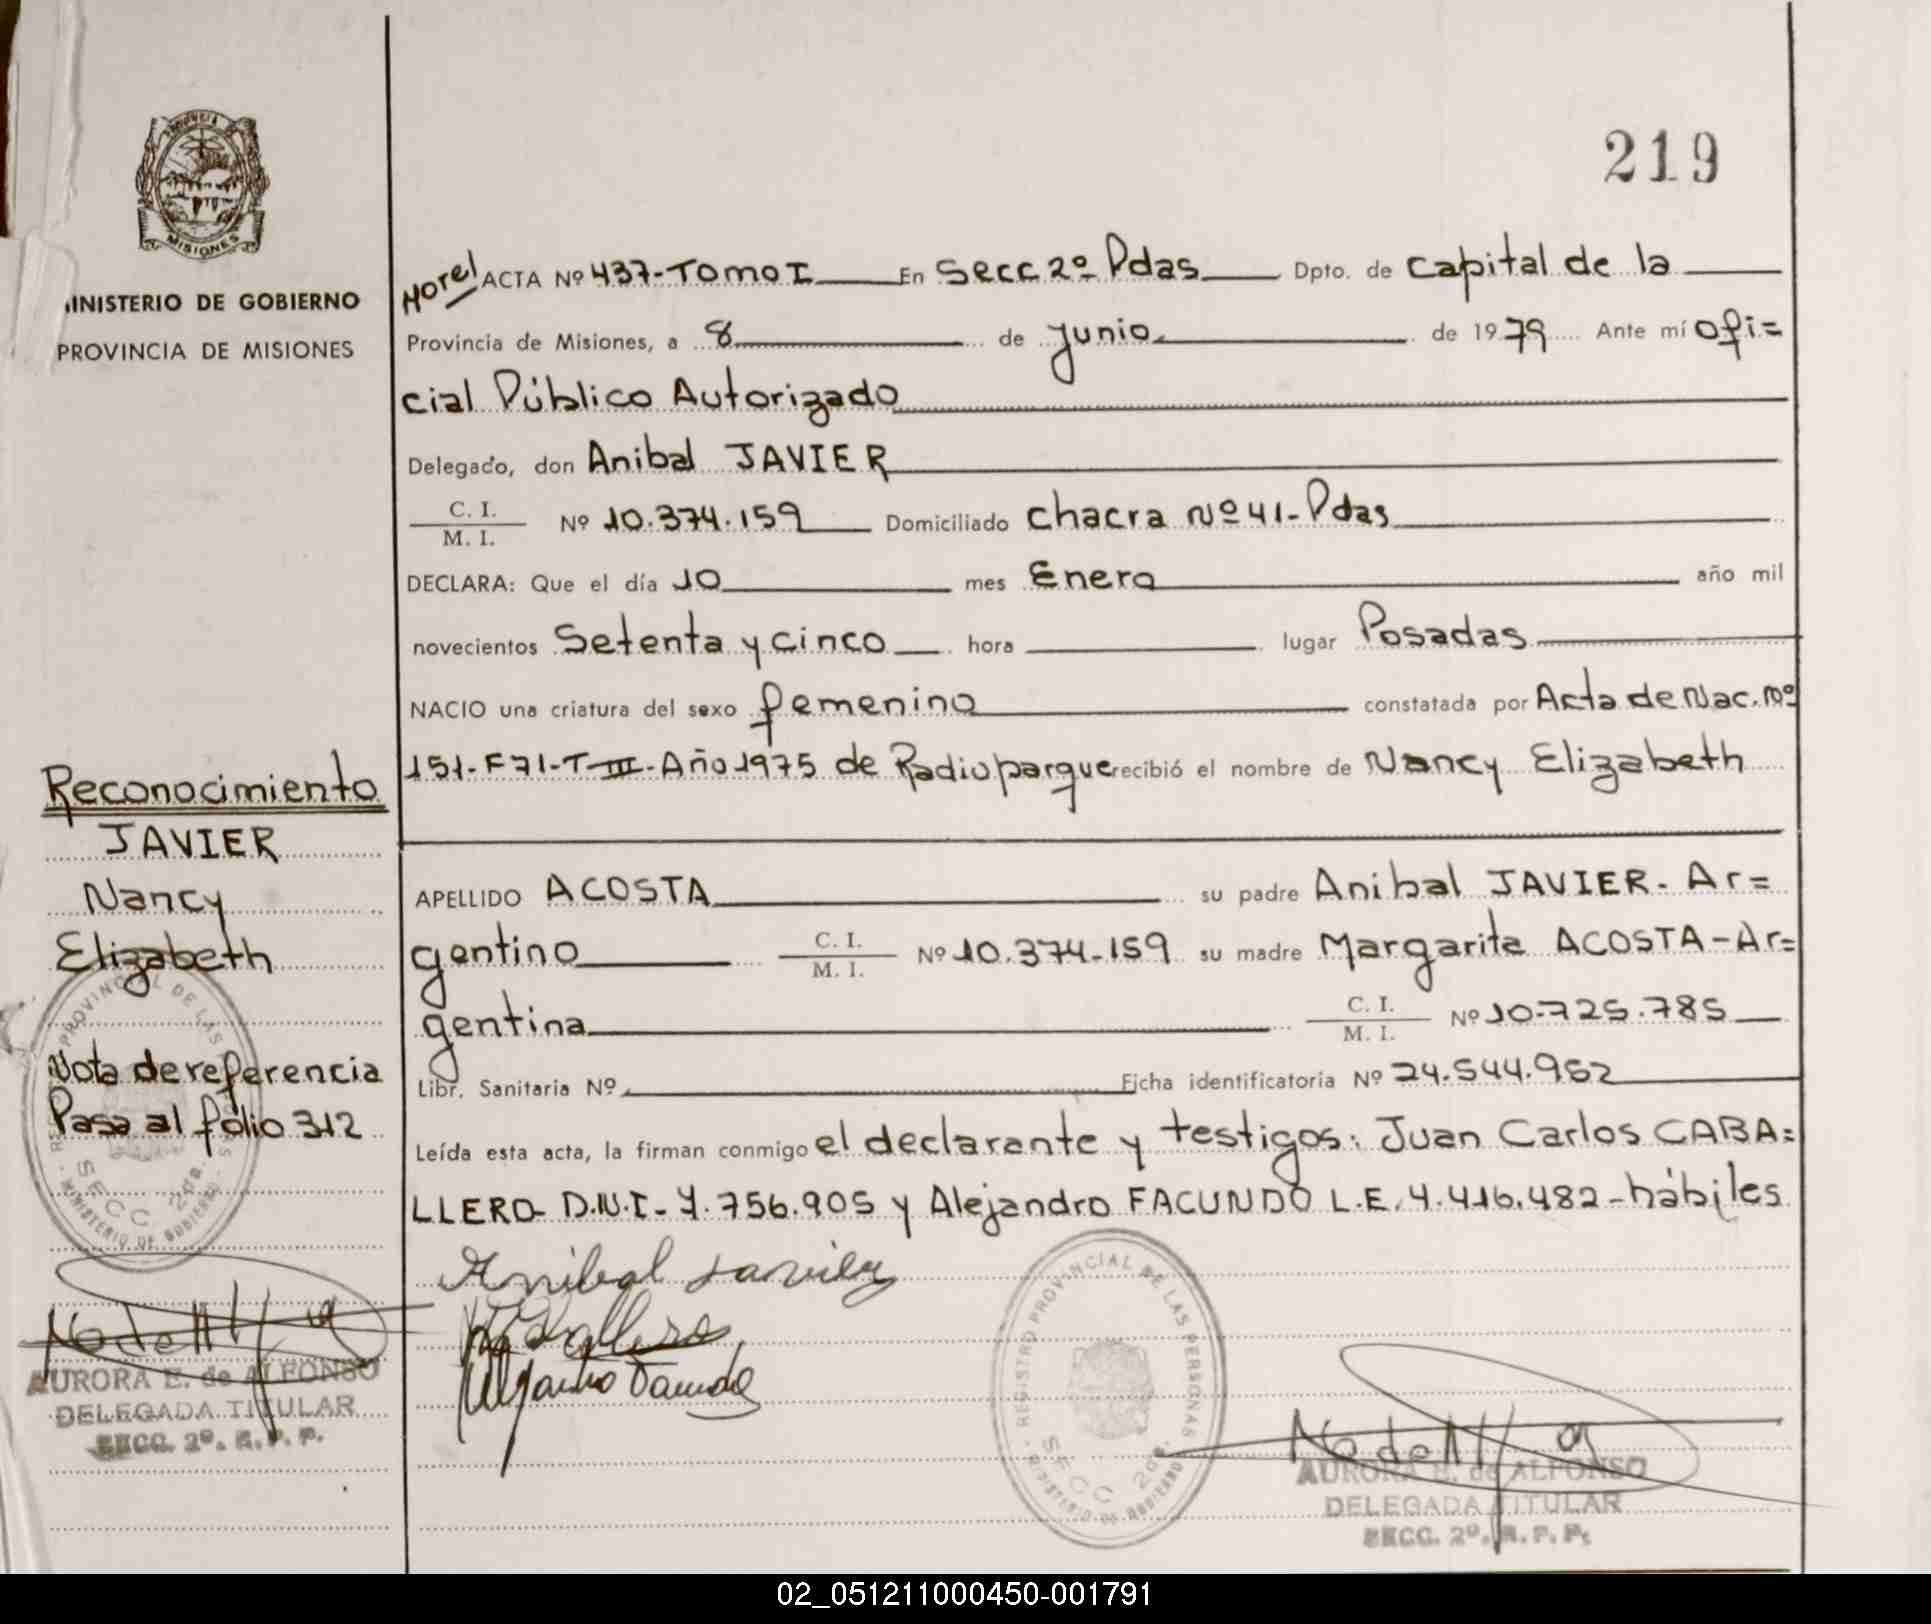 219
PROVINCIA DE
MISIONES
MINISTERIO DE GOBIERNO
PROVINCIA DE MISIONES
ACTA Nº 437-Tomo I En Secc 2º Pdas Dpto. de Capital de la
Provincia de Misiones, a 8 de junio de 1979 Ante mí ofi=
cial Público Autorizado
Delegado, don Anibal JAVIER
C. I.
M. I.
Nº 10.374.159 Domiciliado chacra Nº 41-Pdas
DECLARA: Que el día 10 mes Enero año mil
novecientos Setenta y cinco hora lugar Posadas
NACIO una criatura del sexo femenino constatada por Acta de Nac. Nº
151-F71-T-III-Año 1975 de Radioparque recibió el nombre de Nancy Elizabeth
APELLIDO ACOSTA su padre Anibal JAVIER- Ar=
gentino C. I. M. I. Nº 10.374-159 su madre Margarita ACOSTA-Ar=
gentina C. I. M. I. Nº 10.725.785
Libr. Sanitaria Nº Ficha identificatoria Nº 24.544.952
Leída esta acta, la firman conmigo el declarante y testigos: Juan Carlos CABA=
LLERO- D.N.I- 7.756.905 y Alejandro FACUNDO L.E. 4.416.482-hábiles
Anibal Javier
REGISTRO PROVINCIAL DE LAS PERSONAS
SECC 2da.
MINISTERIO DE GOBIERNO
AURORA E. de ALFONSO
DELEGADA TITULAR
SECC. 2º. R. P. P.
Reconocimiento
JAVIER
Nancy
Elizabeth
Nota de referencia
Pasa al folio 312
REGISTRO PROVINCIAL DE LAS PERSONAS
SECC 2da.
MINISTERIO DE GOBIERNO
AURORA E. de ALFONSO
DELEGADA TITULAR
SECC. 2º. R. P. P.
02_051211000450-001791